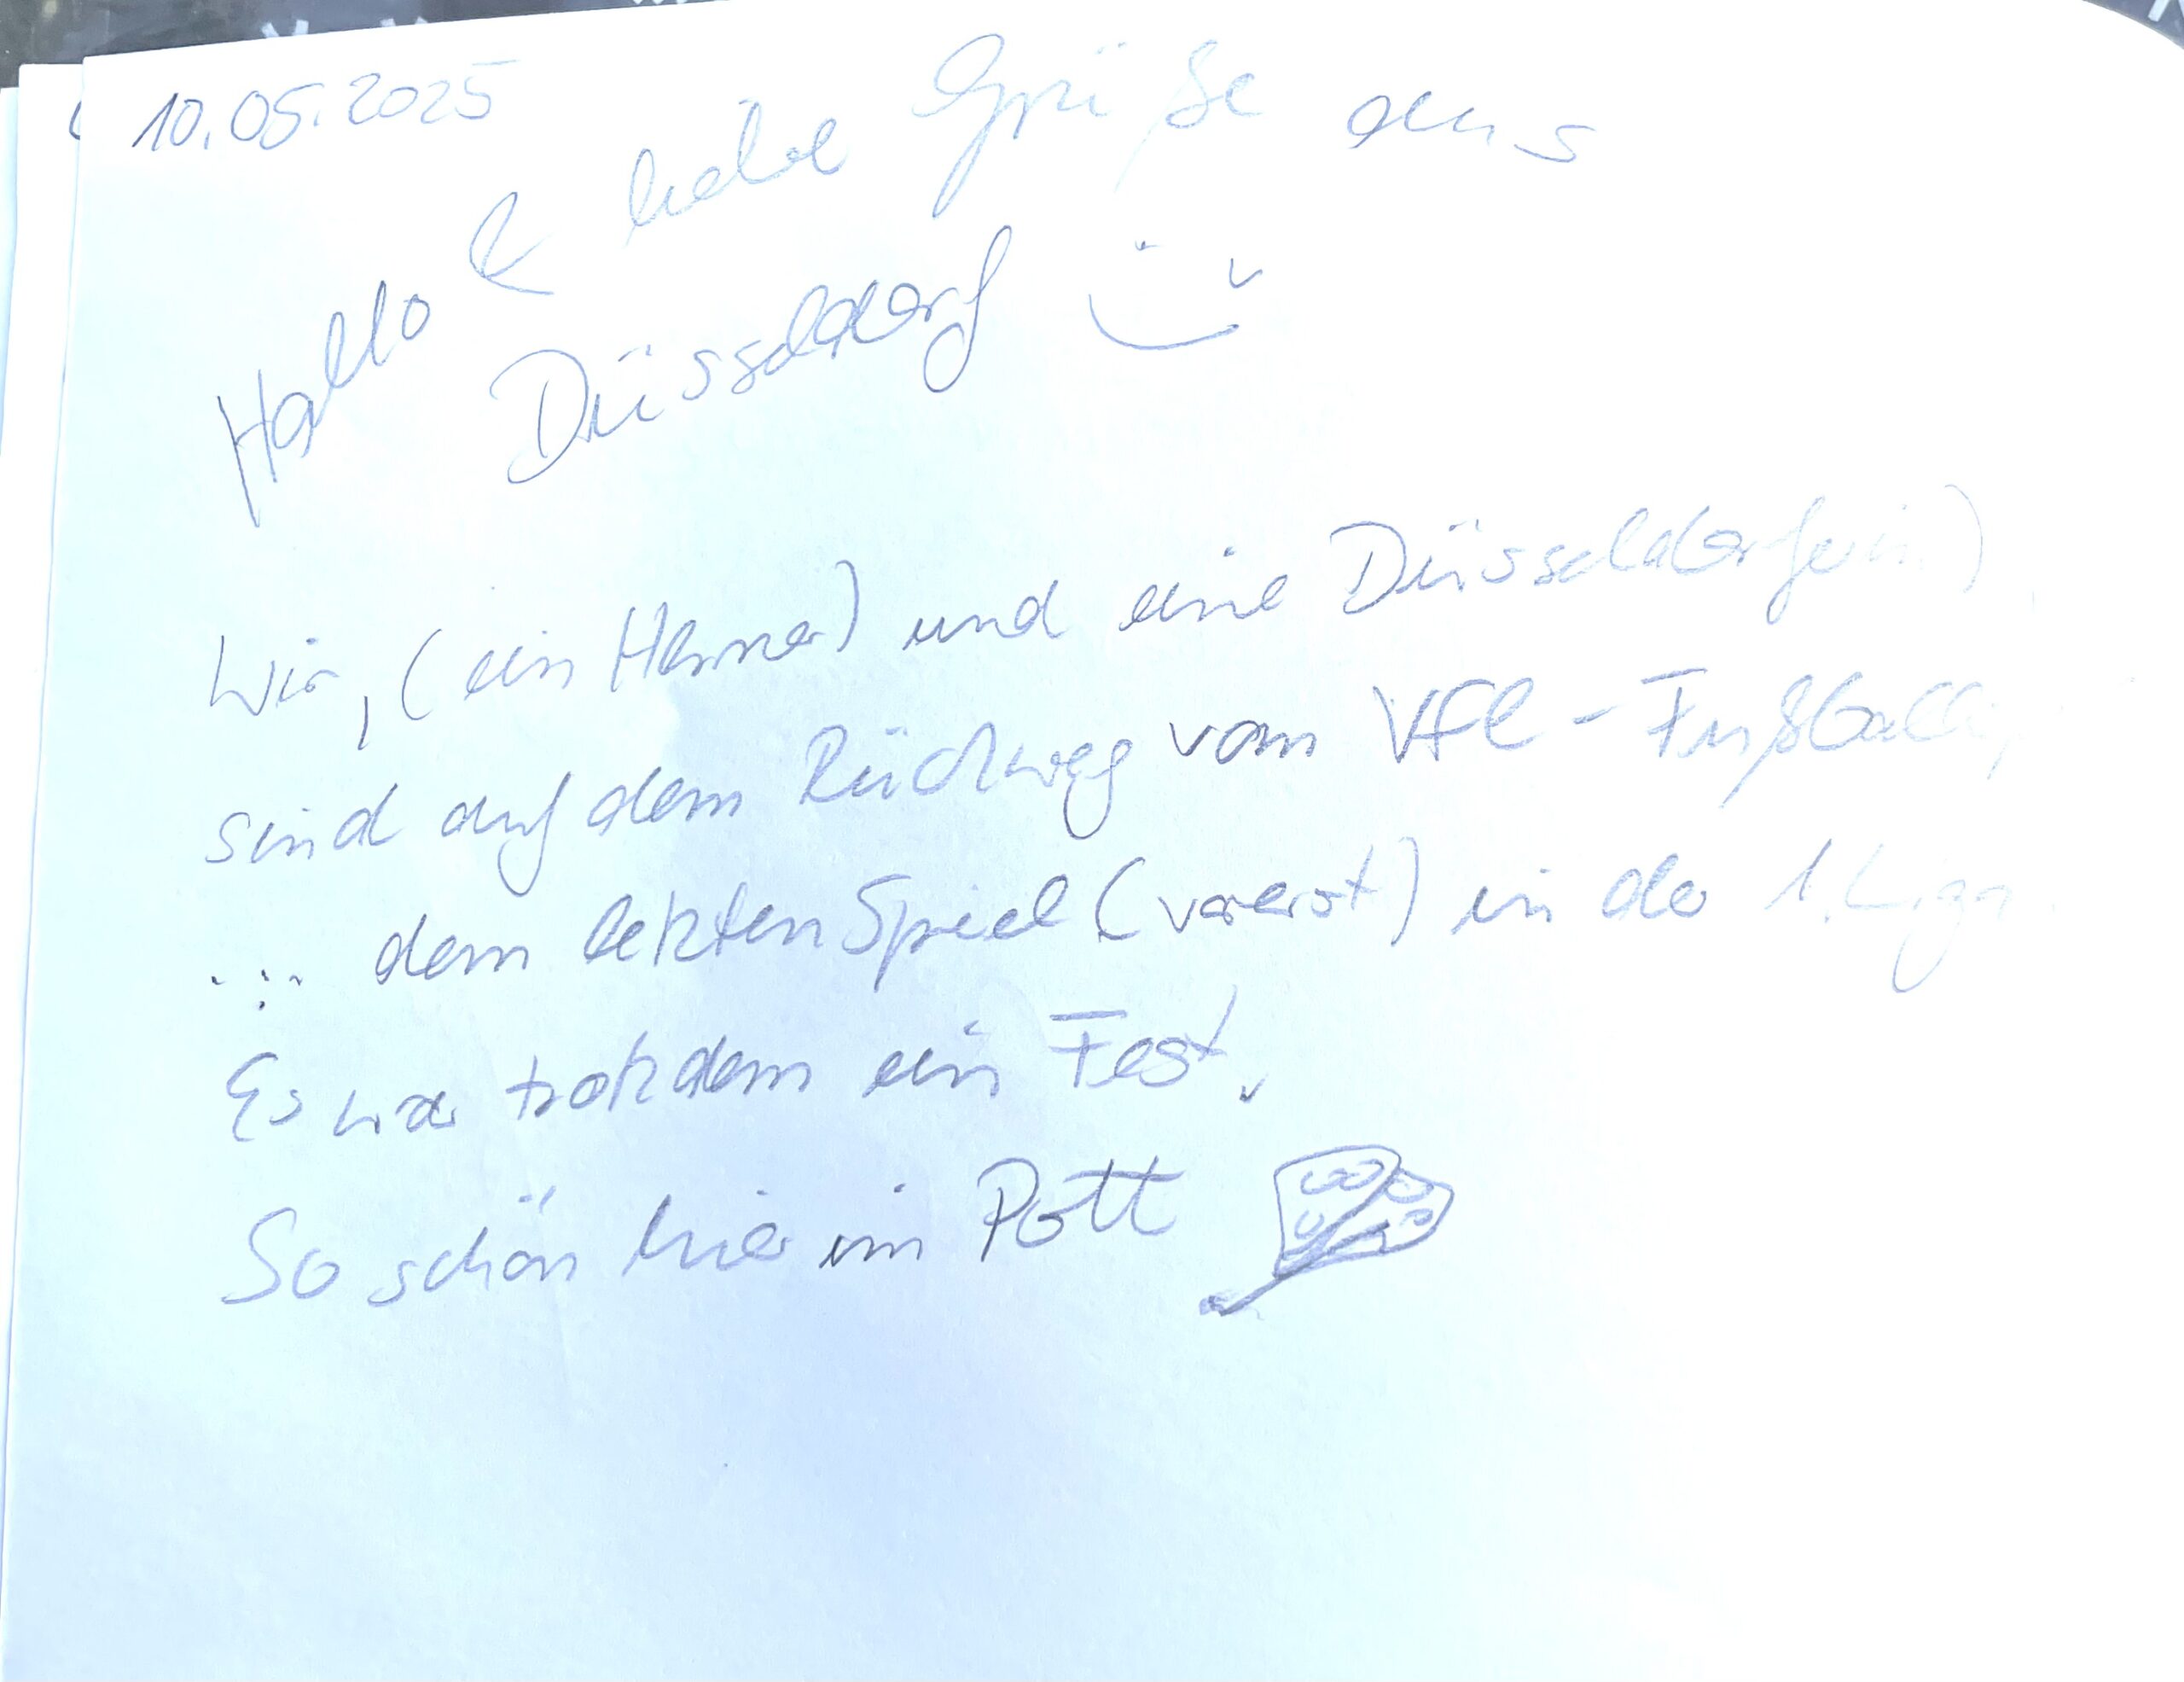 10.05.2025
Hallo & liebe Grüße aus
Düsseldorf
Wir, (ein Herner) und eine Düsseldorferin)
sind auf dem Rückweg vom VfL-Fußball,
... dem letzten Spiel (vorerst) in der 1. Liga
Es war trotzdem ein Fest.
So schön hier im Pott